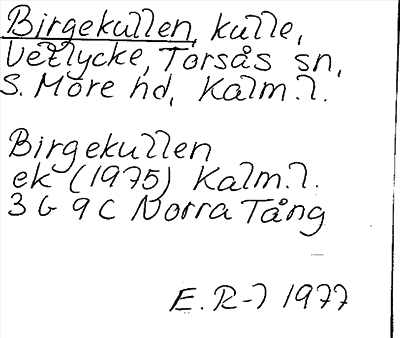 Birgekullen, kulle,
Vetlycke, Torsås sn,
S. Möre hd, Kalm.l.
Birgekullen
ek (1975) Kalm.l.
3 G 9 C Norra Tång
E. R-l 1977